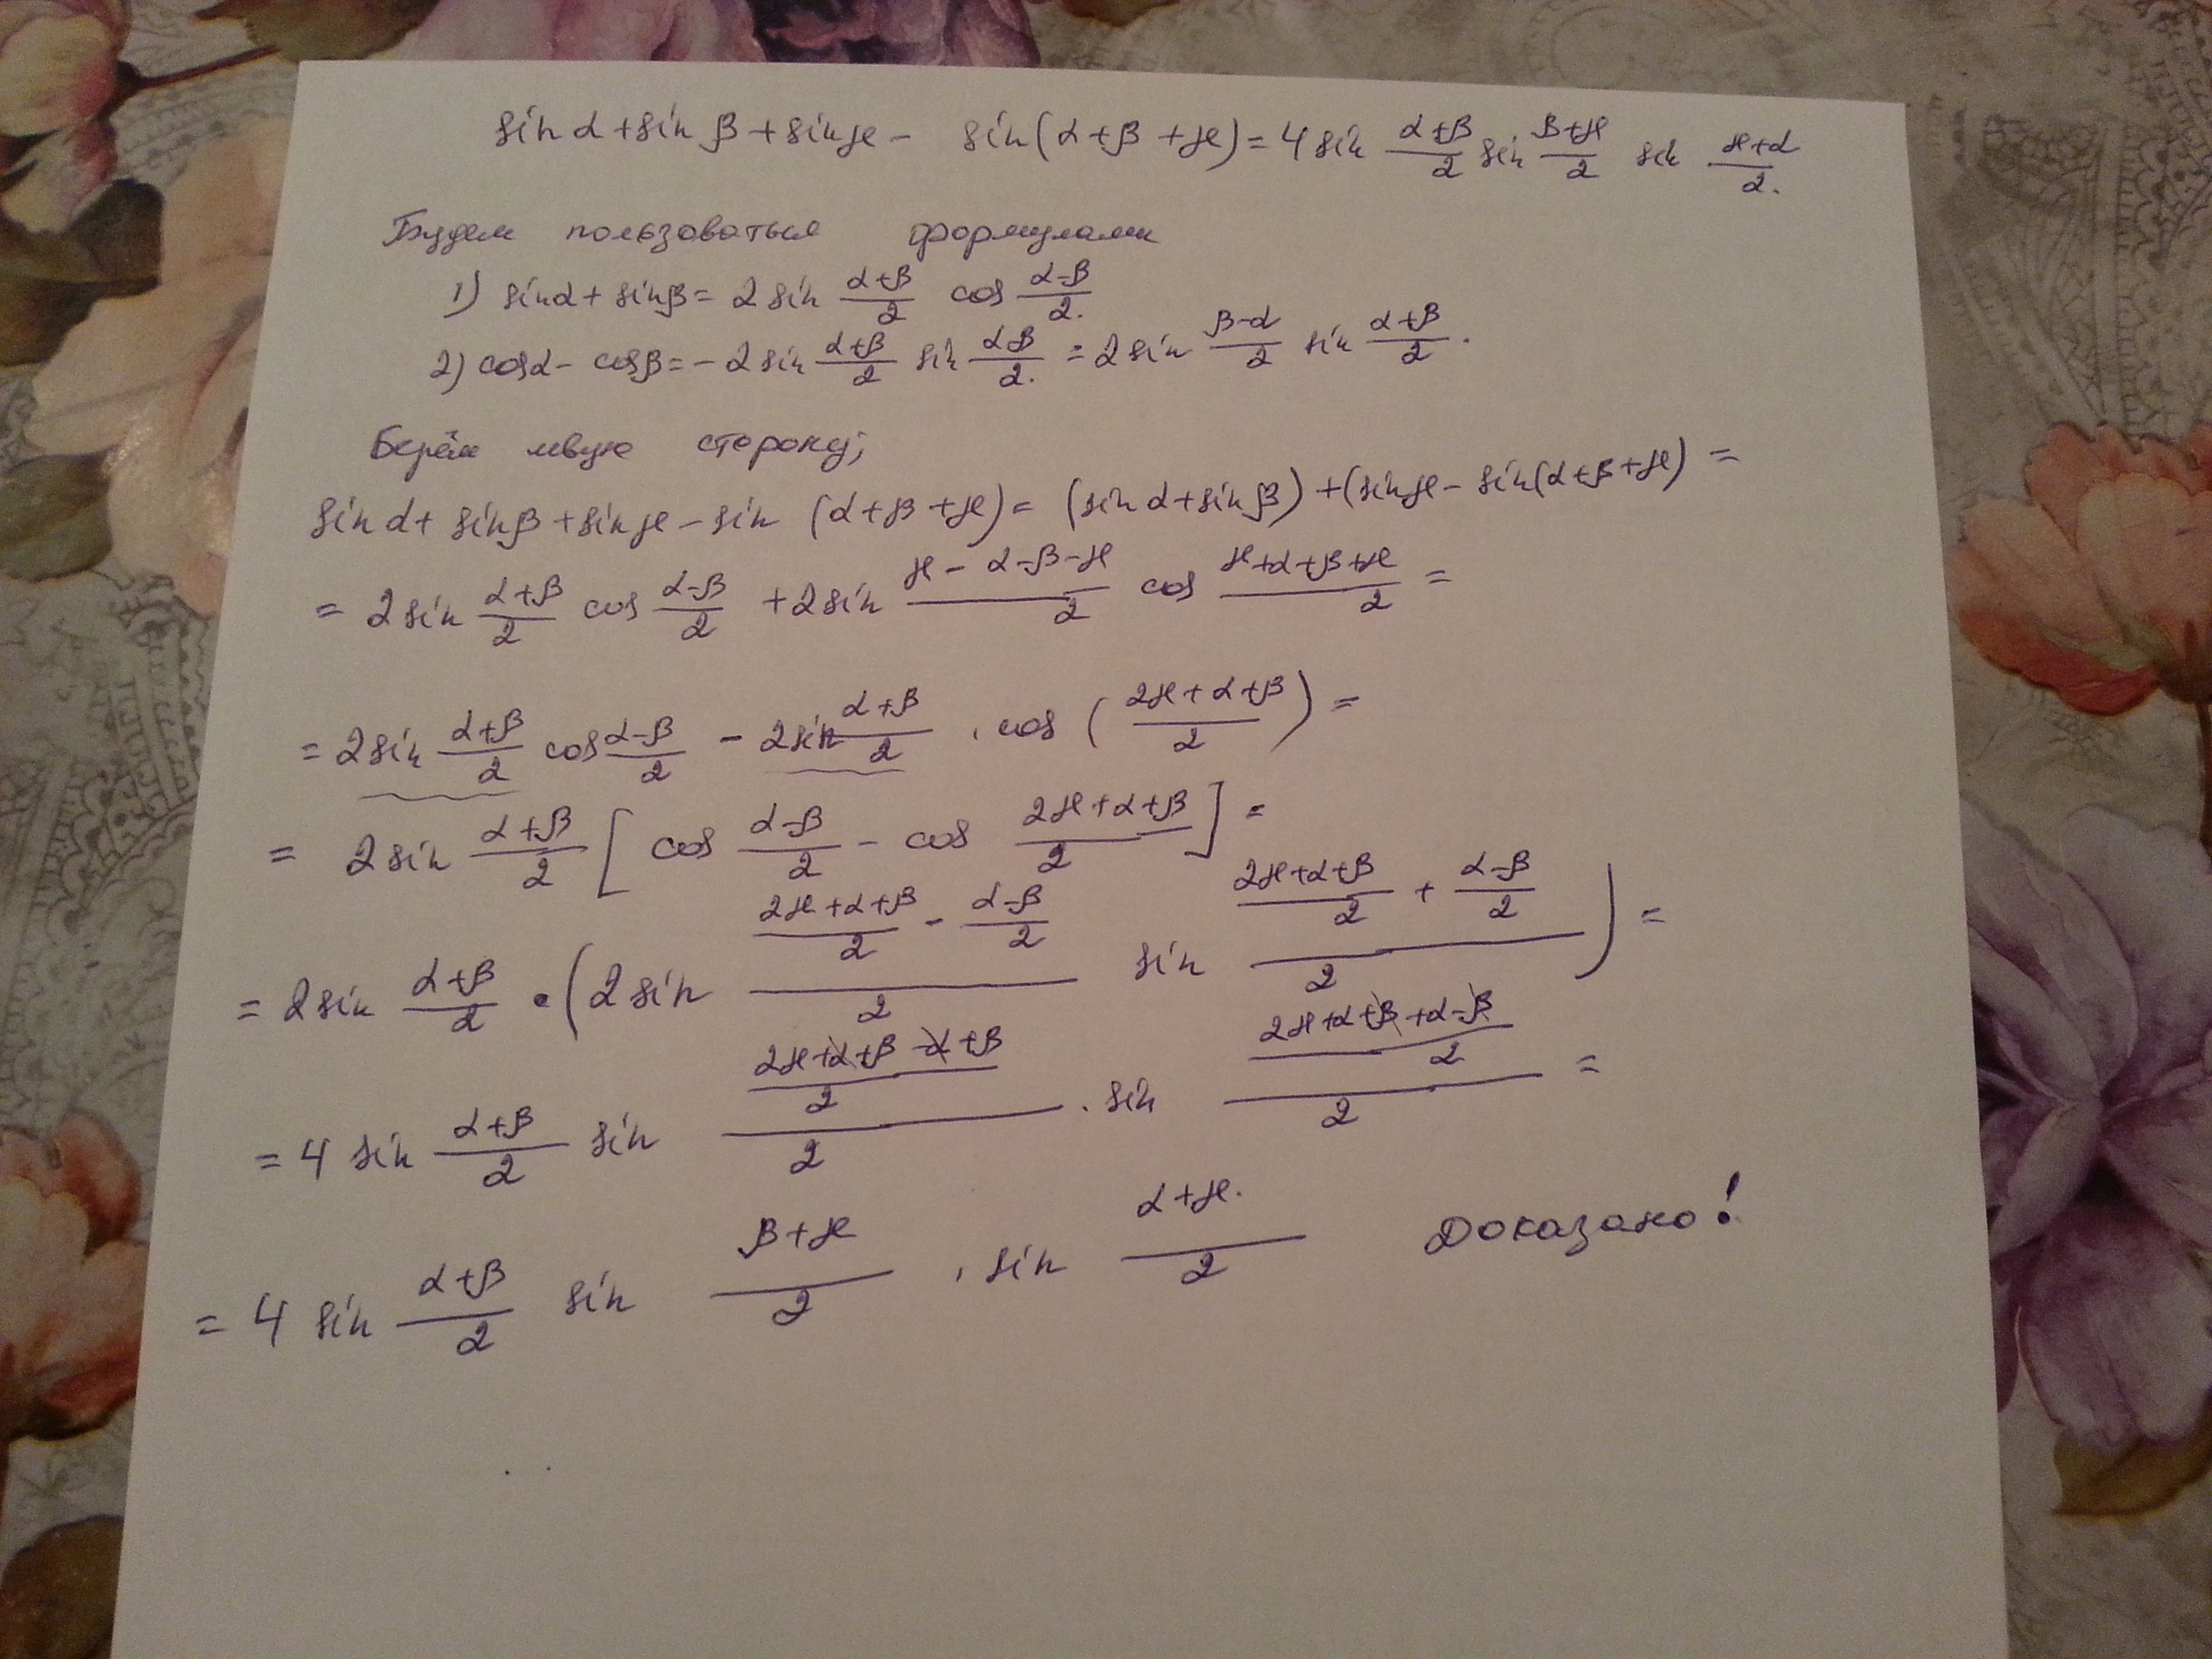 sin α + sin β + sin ℋ - sin (α + β + ℋ) = 4 sin (α+β)/2 sin (β+ℋ)/2 sin (ℋ+α)/2.
Будем пользоваться формулами
1) sin α + sin β = 2 sin (α+β)/2 cos (α-β)/2.
2) cos α - cos β = - 2 sin (α+β)/2 sin (α-β)/2. = 2 sin (β-α)/2 sin (α+β)/2.
Берём левую сторону;
sin α + sin β + sin ℋ - sin (α + β + ℋ) = (sin α + sin β) + (sin ℋ - sin (α + β + ℋ) =
= 2 sin (α+β)/2 cos (α-β)/2 + 2 sin (ℋ - α - β - ℋ)/2 cos (ℋ+α+β+ℋ)/2 =
= 2 sin (α+β)/2 cos (α-β)/2 - 2 sin (α+β)/2 · cos ((2ℋ+α+β)/2) =
= 2 sin (α+β)/2 [cos (α-β)/2 - cos (2ℋ+α+β)/2] =
= 2 sin (α+β)/2 · (2 sin ((2ℋ+α+β)/2 - (α-β)/2)/2 sin ((2ℋ+α+β)/2 + (α-β)/2)/2) =
= 4 sin (α+β)/2 sin ((2ℋ+α+β-α+β)/2)/2 · sin ((2ℋ+α+β+α-β)/2)/2 =
= 4 sin (α+β)/2 sin (β+ℋ)/2 · sin (α+ℋ)/2 Доказано!